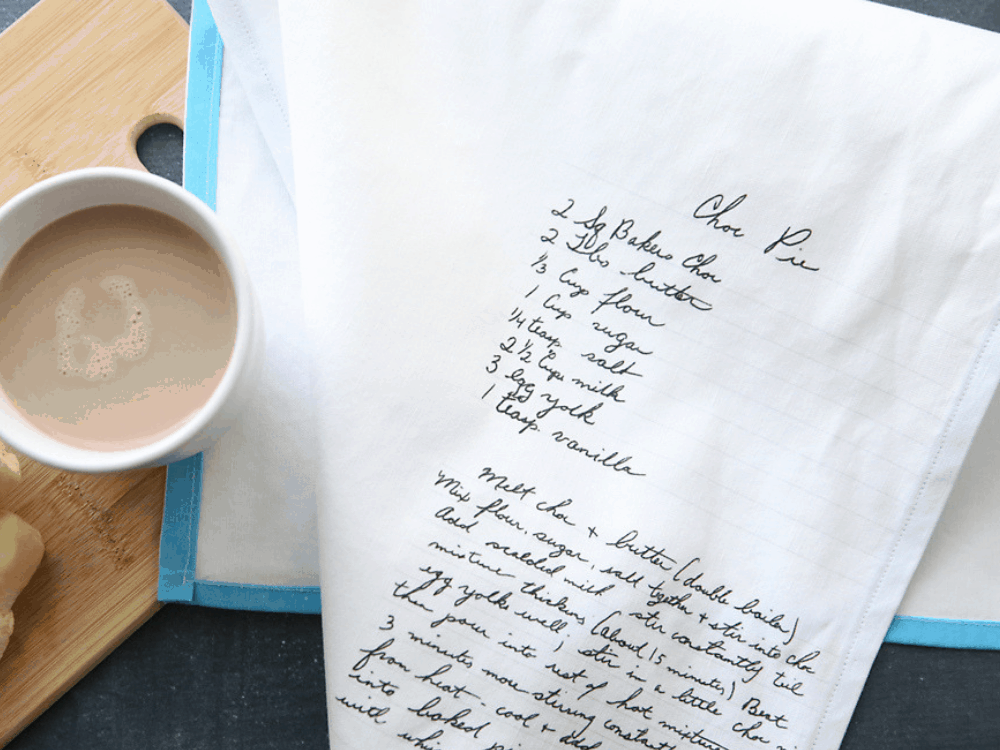 Choc Pie
2 Sq Bakers Choc
2 Tbs butter
1/3 Cup flour
1 Cup sugar
1/4 teasp salt
2 1/2 Cups milk
3 egg yolk
1 teasp. vanilla
Melt choc + butter (double boiler)
Mix flour, sugar, salt together + stir into choc
Add scalded milk, stir constantly til
mixture thickens (about 15 minutes) Beat
egg yolks well; stir in a little choc
then pour into rest of hot mixture
3 minutes more stirring
from heat, cool + add
into baked
with